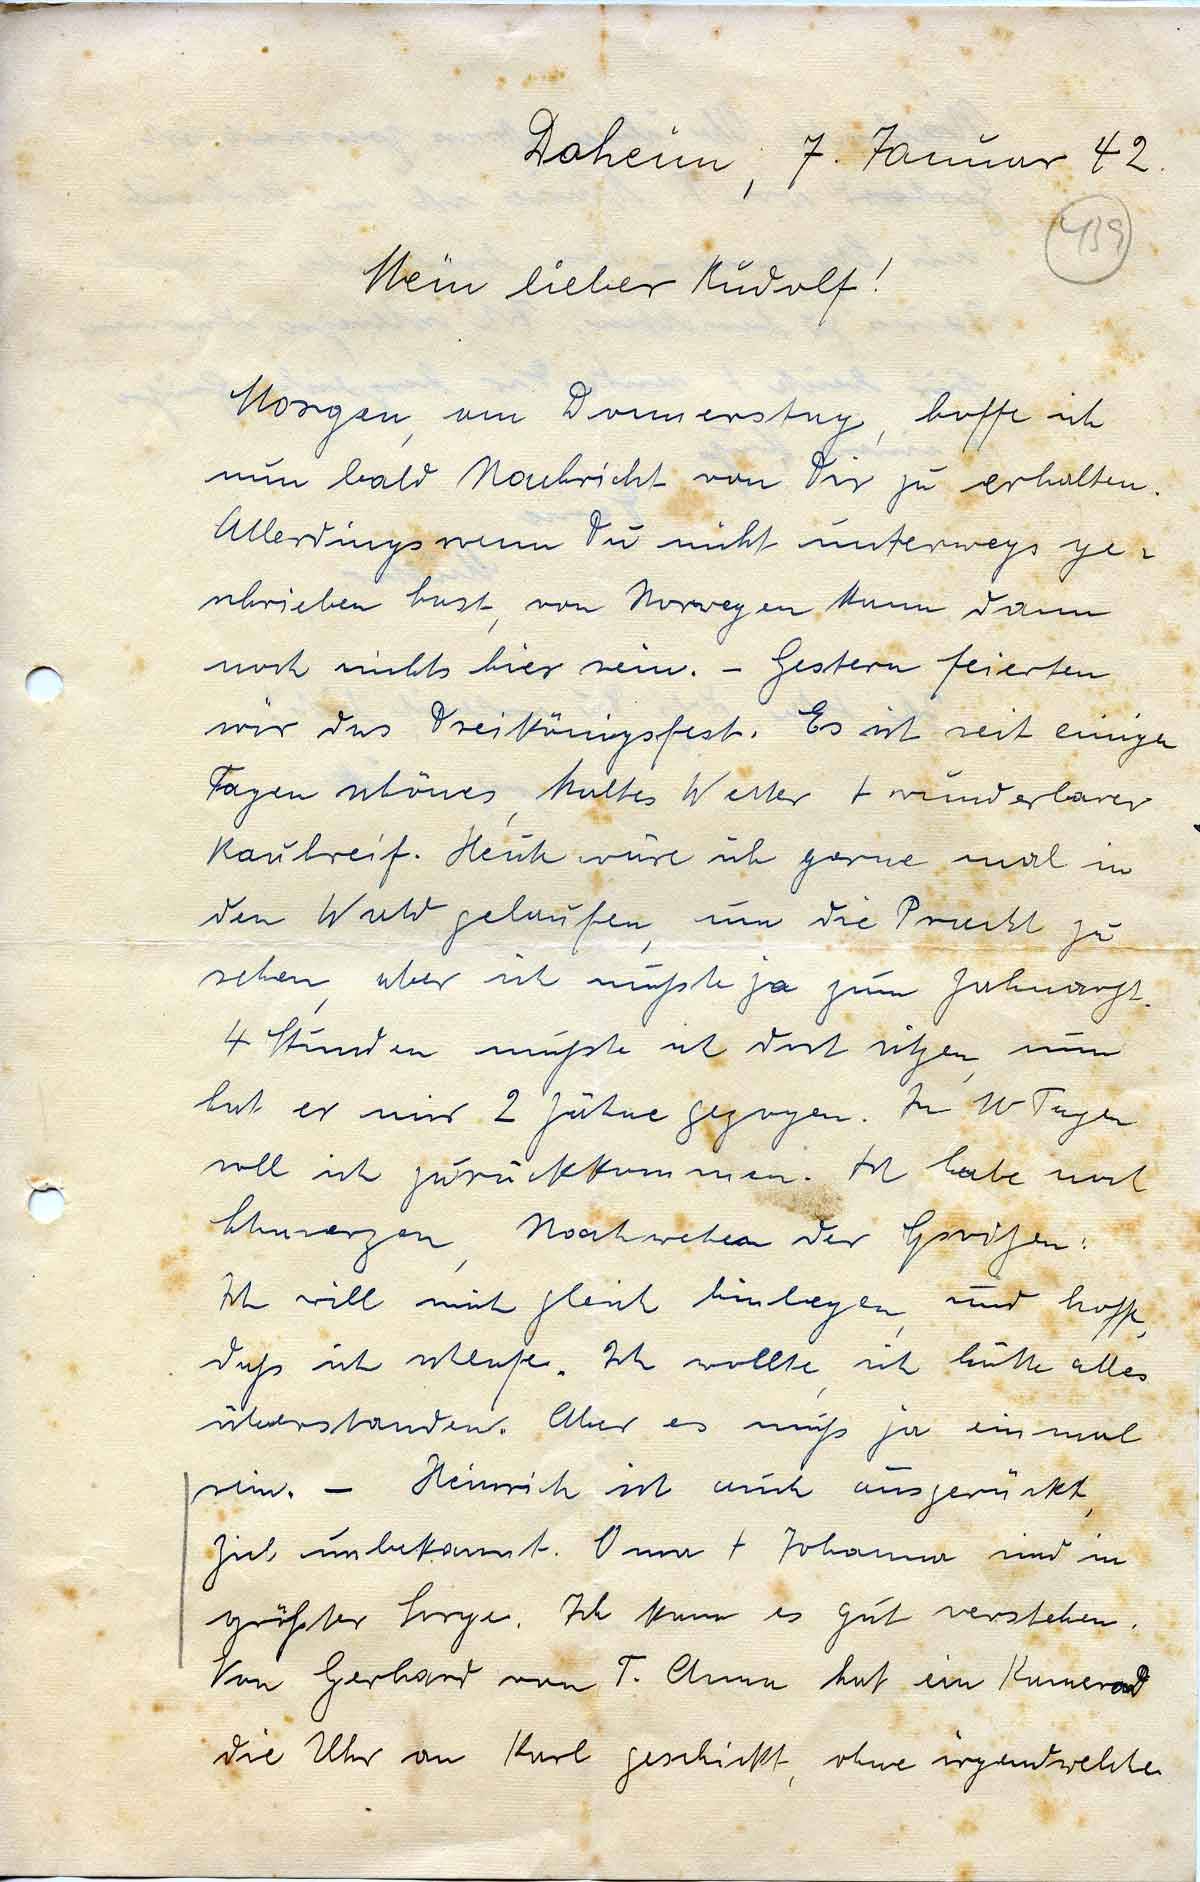 Daheim, 7. Januar 42.
139
Mein lieber Rudolf!
Morgen, am Donnerstag, hoffe ich
nun bald Nachricht von Dir zu erhalten.
Allerdings wenn Du nicht unterwegs ge-
schrieben hast, von Norwegen kann dann
noch nichts hier sein. – Gestern feierten
wir das Dreikönigsfest. Es ist seit einigen
Tagen schönes, kaltes Wetter + wunderbarer
Rauhreif. Heute wäre ich gerne mal in
den Wald gelaufen, um die Pracht zu
sehen, aber ich mußte ja zum Zahnarzt.
4 Stunden mußte ich dort sitzen, nun
hat er mir 2 Zähne gezogen. In 10 Tagen
soll ich zurückkommen. Ich habe noch
Schmerzen, Nachwehen der Spritzen.
Ich will mich gleich hinlegen, und hoffe,
daß ich schlafe. Ich wollte, ich hätte alles
überstanden. Aber es muß ja einmal
sein. – Heinrich ist auch ausgerückt,
Ziel unbekannt. Oma + Johanna sind in
größter Sorge. Ich kann es gut verstehen.
Von Gerhard von T. Anna hat ein Kamerad
die Uhr an Karl geschickt, ohne irgendwelche